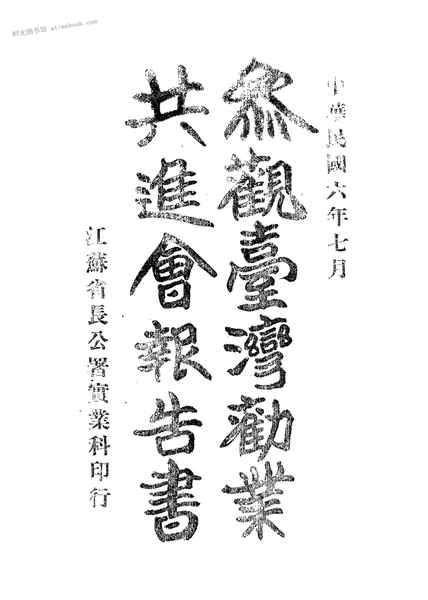 时光图书馆 etimebook.com
中華民國六年七月
參觀臺灣勸業
共進會報告書
江蘇省長公署實業科印行